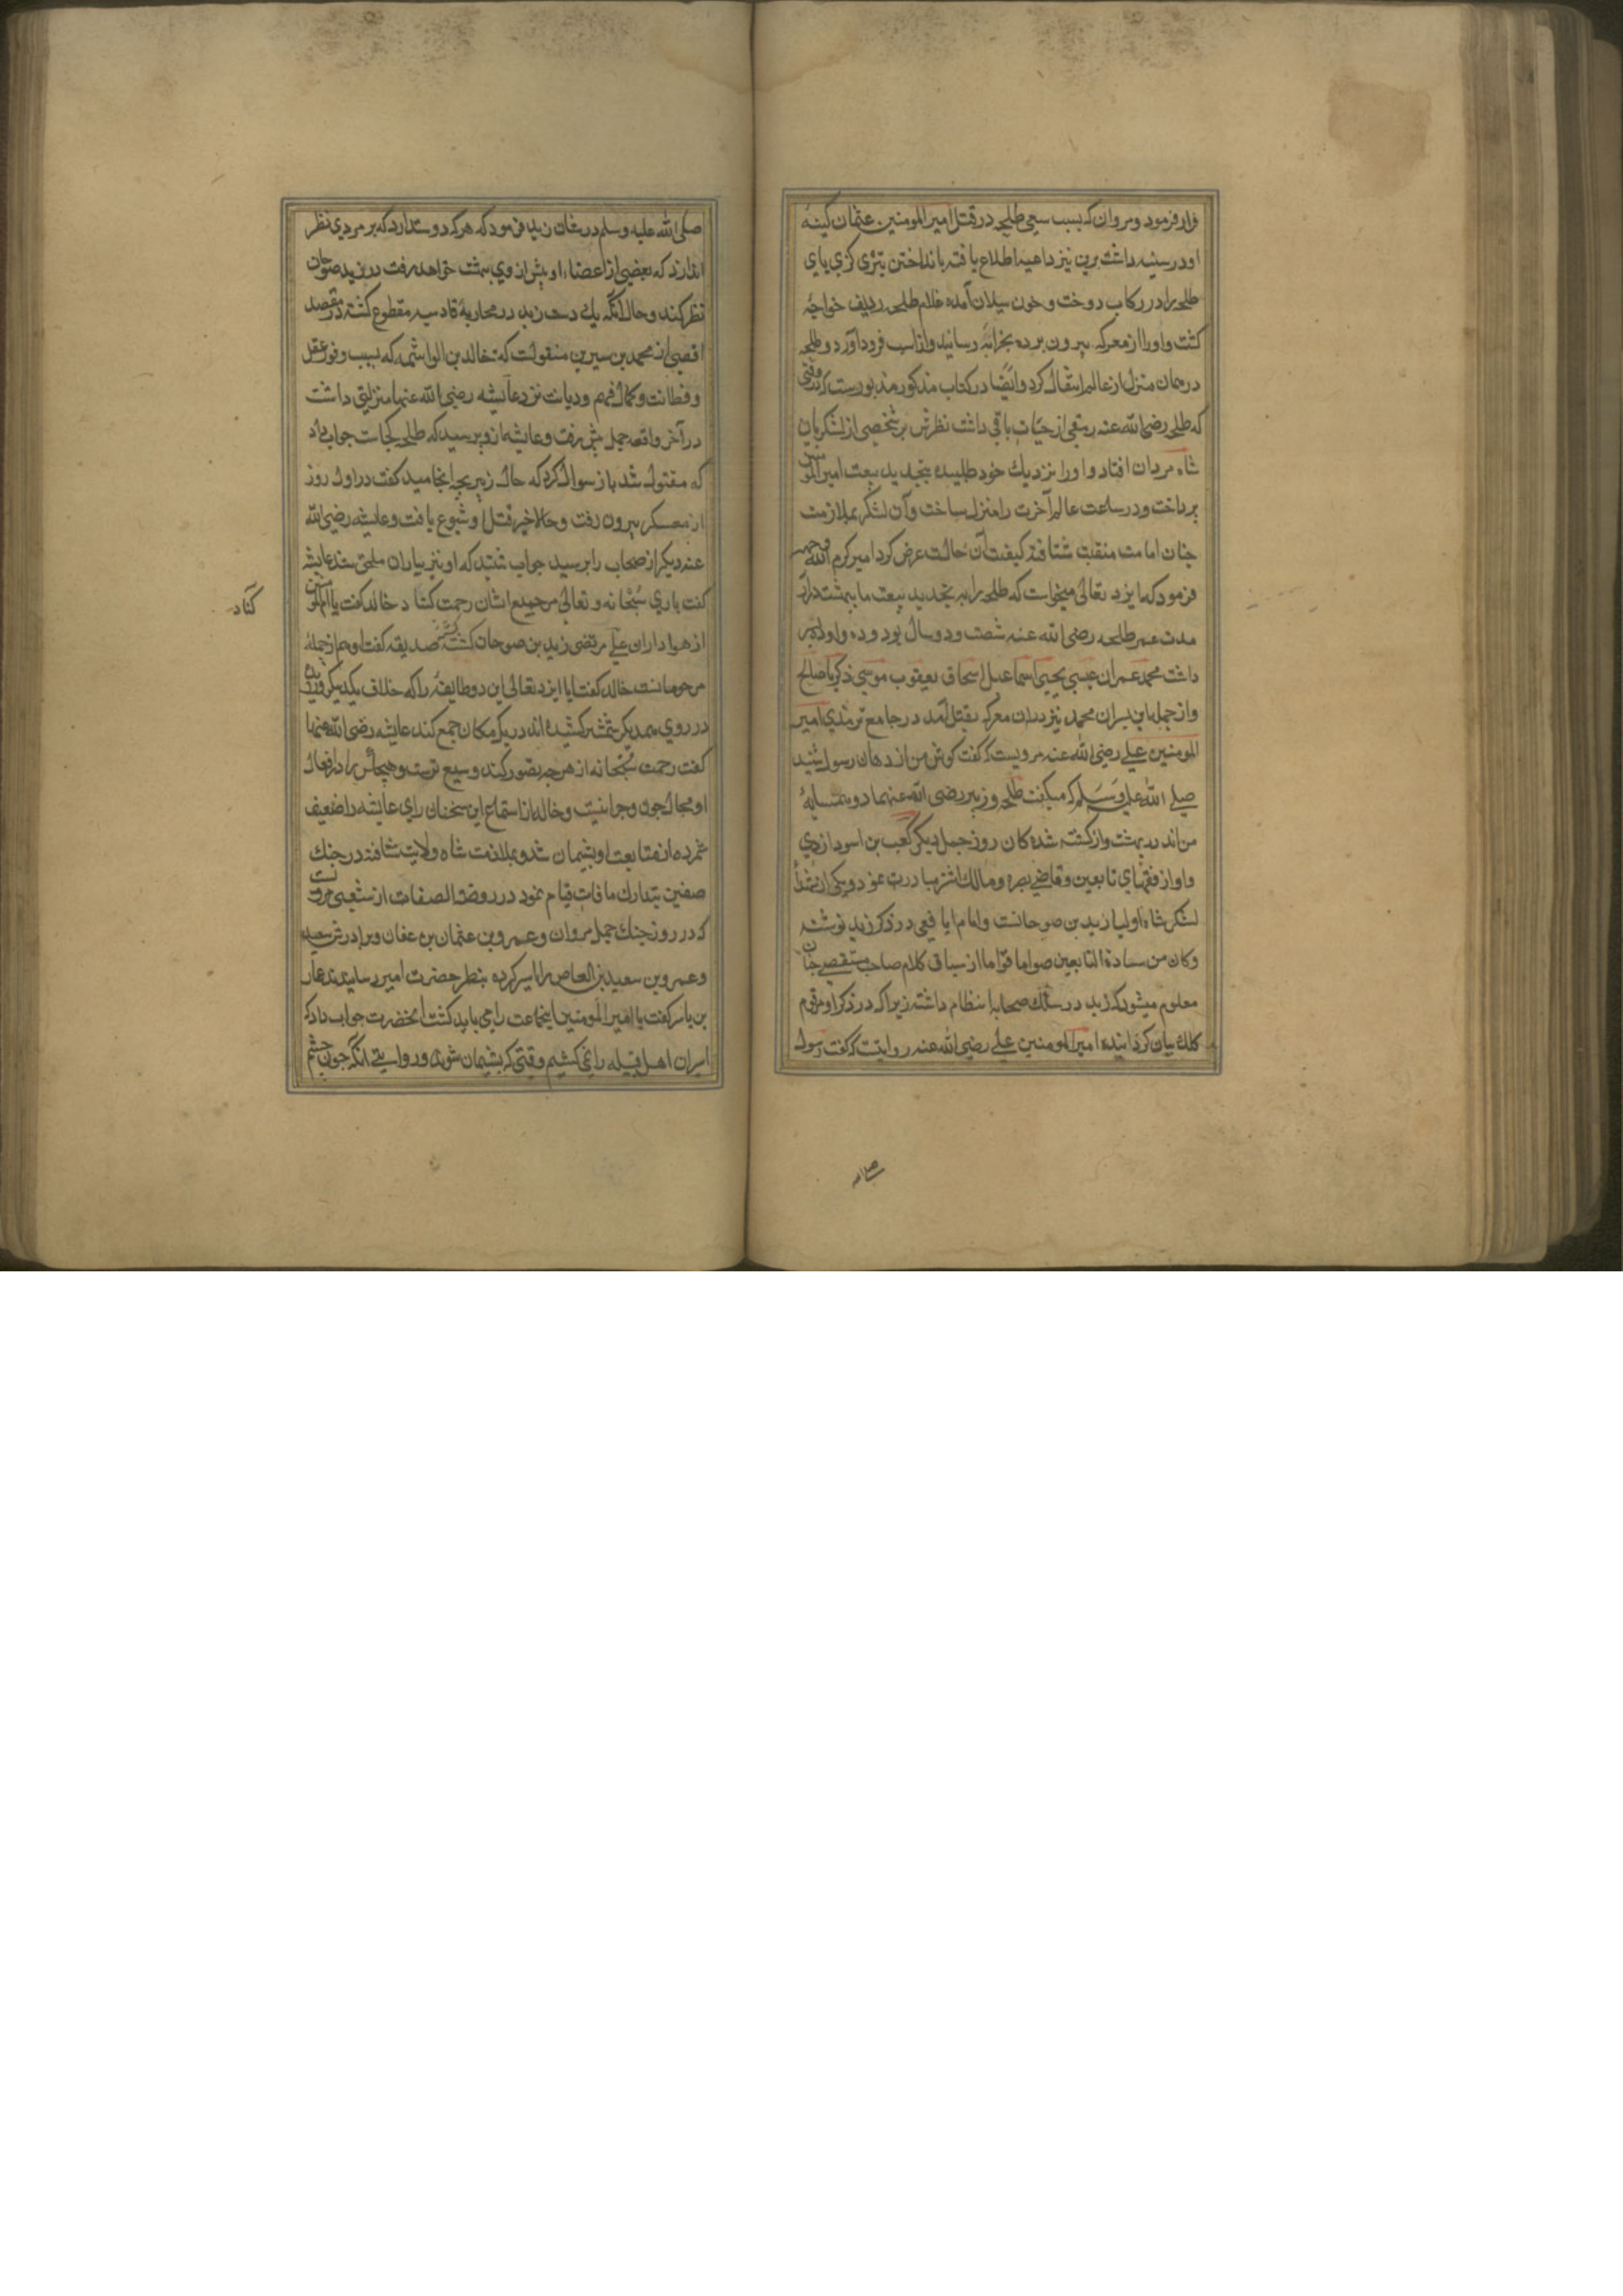 قرار فرمود و مروان که بسبب سعی طلحه در قتل امیر المومنین عثمان کینهٔ
او در سینه داشت برین نیز داهیه اطلاع یافته بانداختن تیری کزی پای
طلحه را در رکاب دوخت و خون سیلان آمده غلام طلحه ردیف خواجهٔ
کشت و او را از معرکه بیرون برده بخرابهٔ رسانید و از اسب فرود آورد و طلحه
در همان منزل از عالم انتقال کرد و ایضًا در کتاب مذکور مذبورست که وقتی
که طلحه رضی الله عنه رمقی از حیات باقی داشت نظرش بر شخصی از لشکریان
شاه مردان افتاد و او را نزدیك خود طلبیده بتجدید بیعت امیر المومنین
پرداخت و در ساعت عالم آخرت را منزل ساخت و آن لشکر بملازمت
جنان امامت منقبت شتافته کیفیت آن حالت عرض کرد امیر کرم الله وجهه
فرمود که ایزد تعالی میخواست که طلحه را بر تجدید بیعت ما ببهشت درآرد
مدت عمر طلحه رضی الله عنه شصت و دو سال بود و ده اولاد
داشت محمد عمران عیسی یحیی اسماعیل اسحاق یعقوب موسی ذکریا صالح
و از جمله این پسران محمد نیز دران معرکه بقتل آمد در جامع ترمذی امیر
المومنین علی رضی الله عنه مرویست که گفت کوش من از دهان رسول شنید
صلی الله علیه وسلم که میکفت طلحه و زبیر رضی الله عنهما دو همسایهٔ
من اند در بهشت و از کشته شده کان روز جمل دیکر کعب بن اسود ازدی
و او از فقهای تابعین و قاضی بصره و مالك اشتر مبادرت نمود و یکی از
لشکر شاه اولیا زید بن صوحانست و امام یافعی در ذکر زید نوشته
و کان من سادة التابعین صواما قواما از سیاق کلام صاحب مستقصی جنان
معلوم میشود که زید در سلك صحابه انتظام داشته زیرا که در ذکر او مرقوم
کلك بیان کردانیده امیر المومنین علی رضی الله عنه روایتست که گفت رسول
صلی الله علیه وسلم در شان زید فرمود که هر که دوستدارد که بر مردی نظر
اندازد که بعضی از اعضاء او پیش از وی ببهشت خواهد رفت در زید صوحان
نظر کند و حال آنکه یك دست زید در محاربهٔ قادسیه مقطوع کشته در مقصد
اقصی از محمد بن سیرین منقولست که خالد بن الواشمه که بسبب وفور عقل
و فطانت و کمال فهم و دیانت نزد عایشه رضی الله عنها منزلتی داشت
در آخر واقعه جمل پیش رفت و عایشه از و پرسید که طلحه کجاست جواب داد
که مقتول شد باز سوال کرد که حال زبیر بچه انجامید کفت در اول روز
از معسکر بیرون رفت و حالا خبر قتل او شیوع یافت و عایشه رضی الله
عنه دیکر از صحاب را پرسید جواب شنید که او نیز بیاران ملحق شد عایشه
کفت باری سبحانه و تعالی مر جمیع ایشان رحمت کناد خالد کفت یا ام المومنین
کناد
از هواداران علی مرتضی زید بن صوحان کشته صدیقه کفت او هم از جملهٔ
مرحومانست خالد کفت ایا ایزد تعالی این دو طایفهٔ را که خلاف یکدیکر ورزیده
در روی همدیکر شمشیر کشیده اند در یك مکان جمع کند عایشه رضی الله عنها
کفت رحمت سبحانه از هر چه تصور کنند وسیع ترست و هیچکس را در افعال
او مجال جون و جرا نیست و خالد از استماع این سخنان رای عایشه را ضعیف
شمرده از متابعت او پشیمان شد و بملازمت شاه ولایت شتافته در جنك
صفین بتدارك ما فات قیام نمود در روضة الصفات از شعبی مرویست
که در روز جنك جمل مروان و عمرو بن عثمان بن عفان و برادرش سعید
و عمرو بن سعید بن العاص را اسیر کرده بنظر حضرت امیر رسانیدند عمار
بن یاسر کفت یا امیر المومنین اینجماعت را می باید کشت انحضرت جواب داد که
اسیران اهل قبیله را نمی کشیم وقتی که پشیمان شوند و روایتی انکه جون چشم